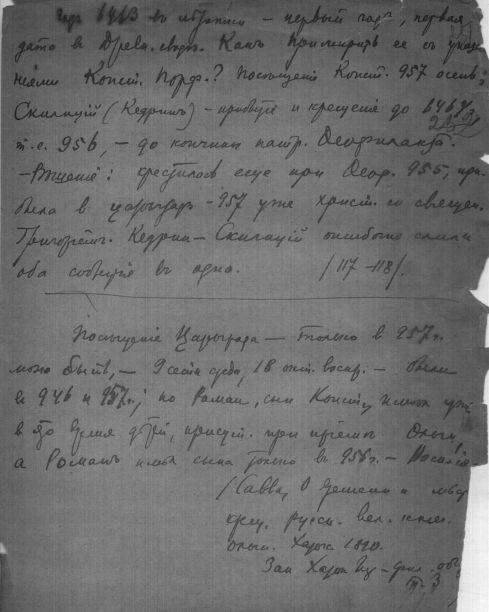 Годъ 6463 въ лѣтописи – первый годъ, первая
дата в Древн. сводѣ. Какъ примирить ее съ указа-
ніями Конст. Порф.? Посѣщеніе Конст. 957 осень;
Скилицій (Кедринъ) – прибытіе и крещеніе до 6464,
т.е. 956, – до кончины патр. Ѳеофилакта.
– Рѣшеніе: крестилась еще при Ѳеоф. 955, при-
была в Царьградъ – 957 уже христ. со священ.
Григоріемъ. Кедрин – Скилицій ошибочно слили
оба событія въ одно. /117–118/.
Посѣщеніе Царьграда – только в 957 г.
може быть, – 9 сент. среда, 18 окт. воскр. – были
в 946 и 957 г.; но Роман, сын Конст., имѣл уже
в это время дѣтей, присут. при пріемѣ Ольги,
а Романъ имѣл сына только въ 956 г. – Василія
/Савва, О времени и мѣст
крещ. русск. вел. княг.
Ольги. Харьк. 1890.
Зап. Харьк. Ист-фил. общ.
т. 3